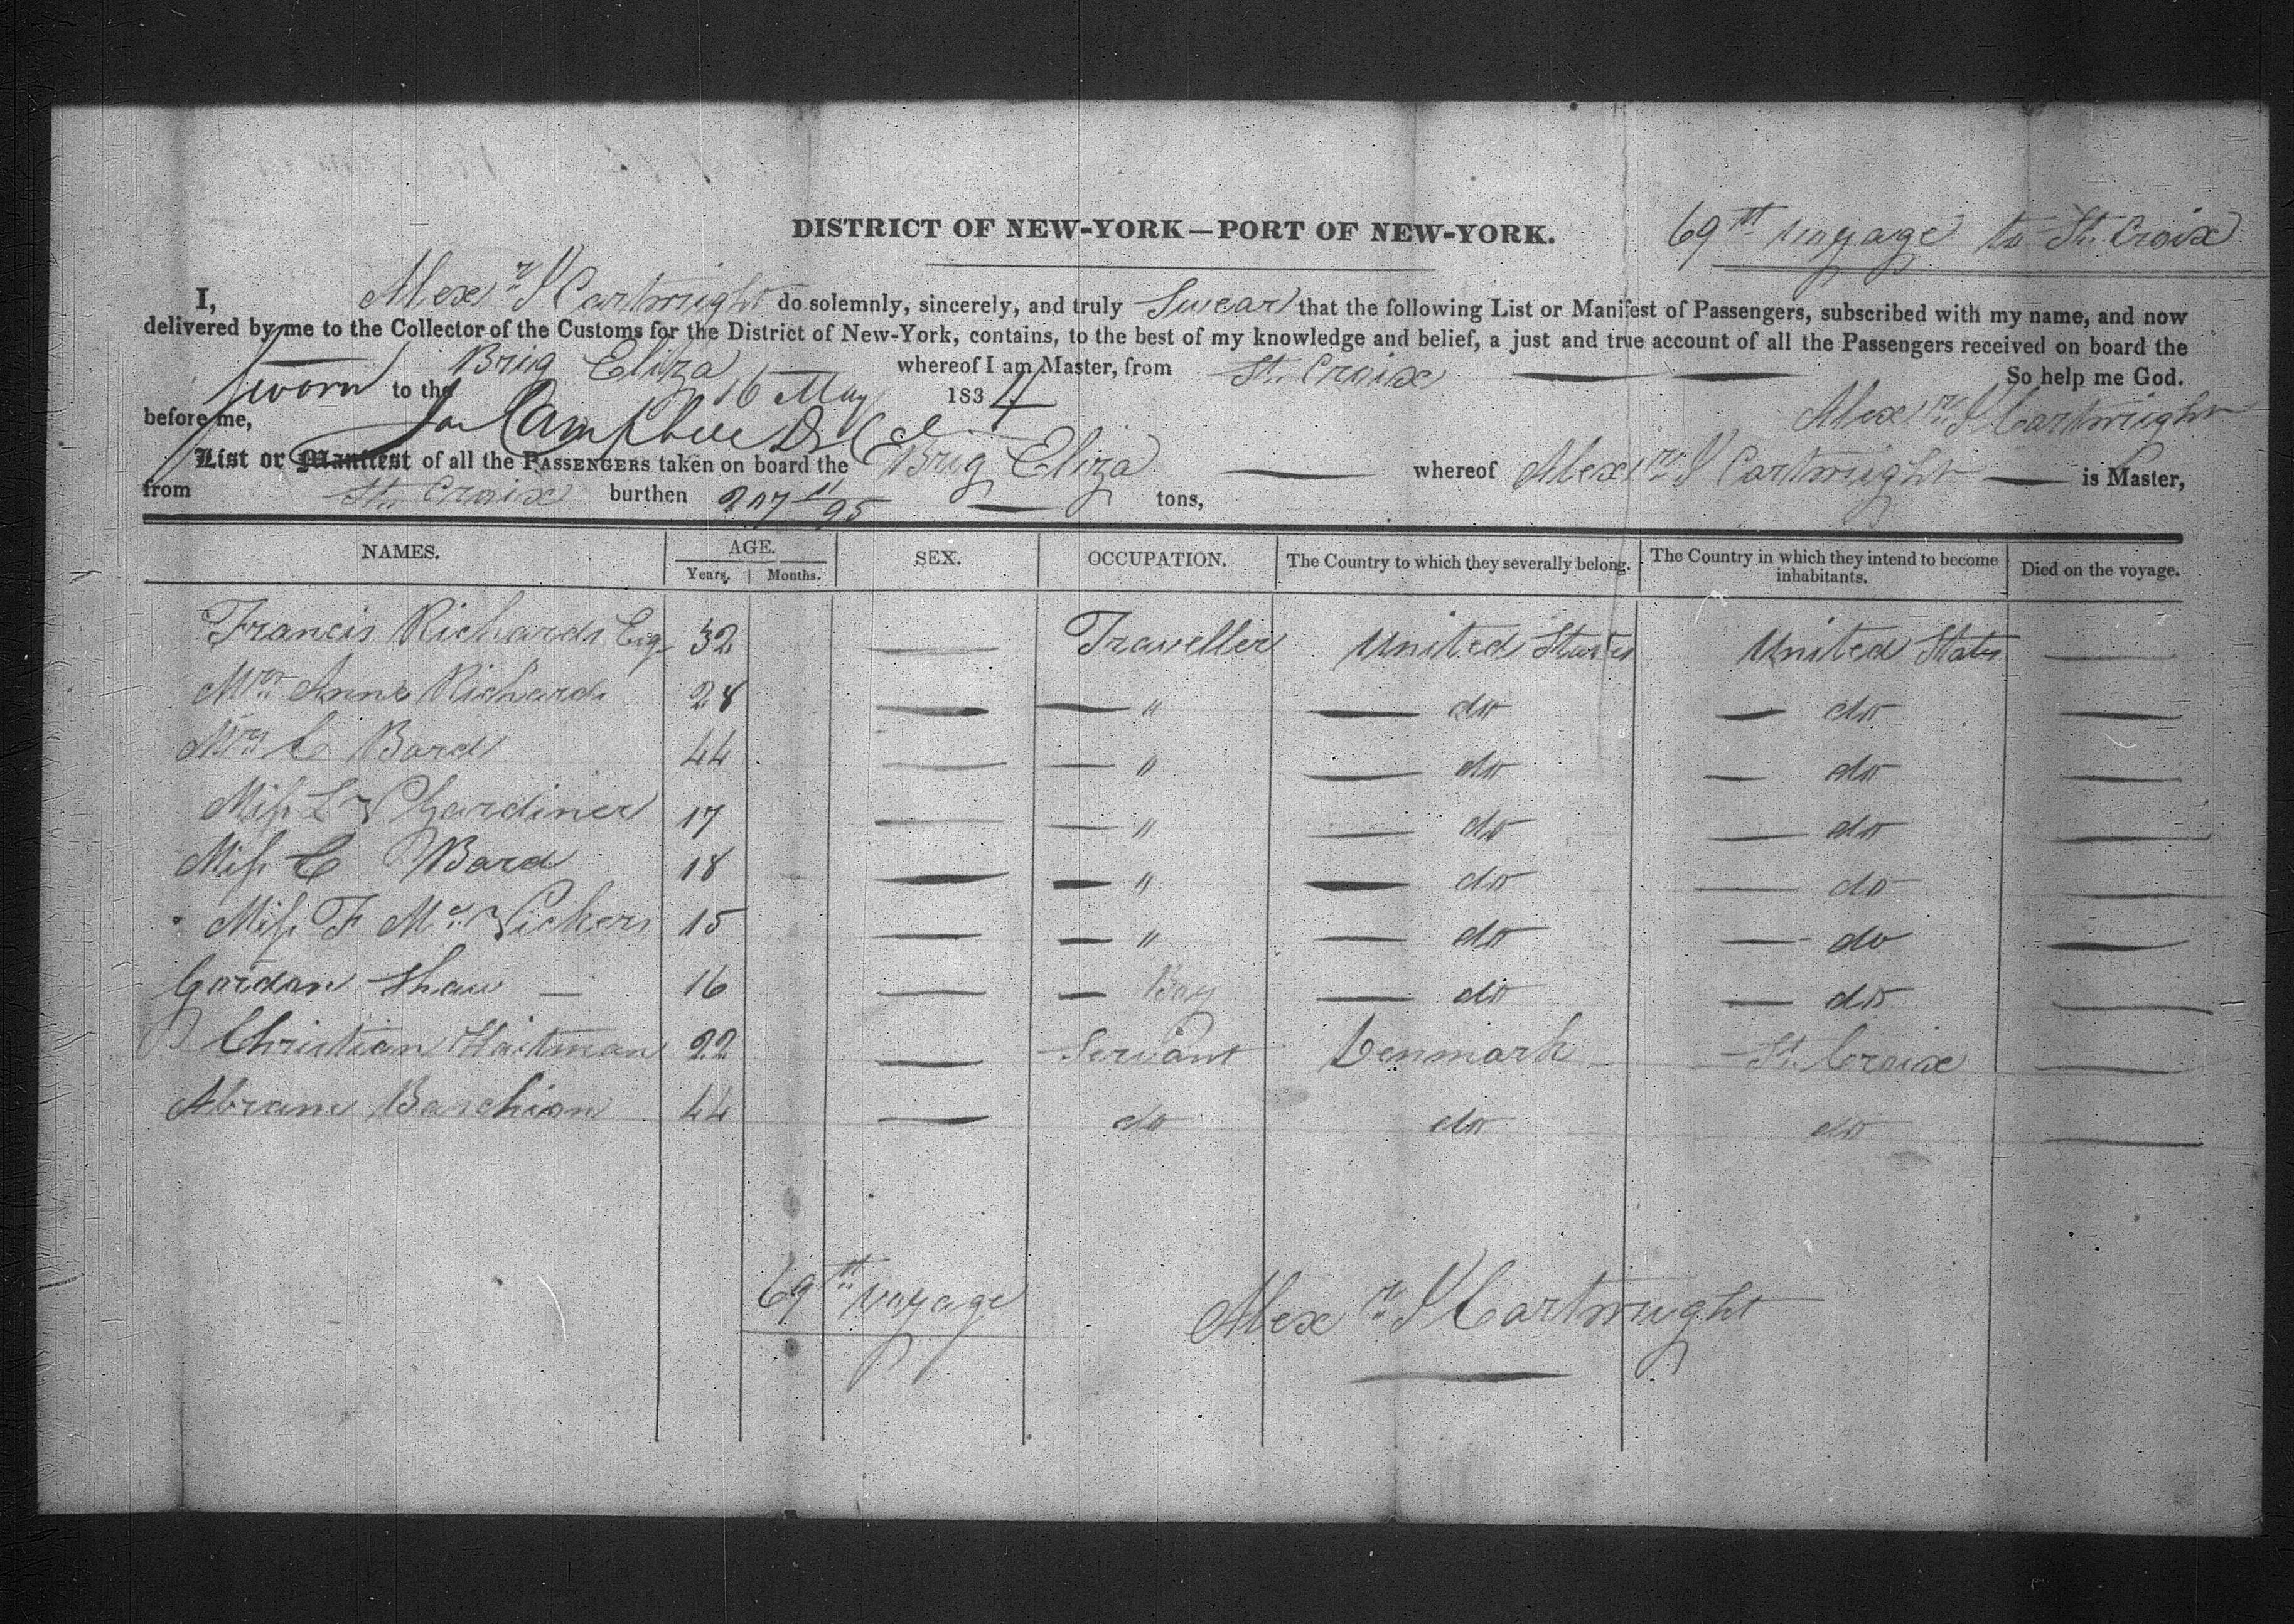 DISTRICT OF NEW-YORK—PORT OF NEW-YORK.
69th voyage to St. Croix
I, Alexr J Cartwright do solemnly, sincerely, and truly Swear that the following List or Manifest of Passengers, subscribed with my name, and now
delivered by me to the Collector of the Customs for the District of New-York, contains, to the best of my knowledge and belief, a just and true account of all the Passengers received on board the
Brig Eliza whereof I am Master, from St. Croix So help me God.
Sworn to the 16 May 1834 Alexr J Cartwright
before me, Campbell
List or Manifest of all the PASSENGERS taken on board the Brig Eliza whereof Alexr J Cartwright is Master,
from St. Croix burthen 207 11/95 tons,
NAMES. AGE. SEX. OCCUPATION. The Country to which they severally belong. The Country in which they intend to become inhabitants. Died on the voyage.
Years. Months.
Francis Richards Esq 32 — Traveller United States United States —
Mrs Anne Richards 28 — — " — do — do —
Mrs C Bard 44 — — " — do — do —
Miss L Gardiner 17 — — " — do — do —
Miss C Bard 18 — — " — do — do —
Miss F Mc Vickers 15 — — " — do — do —
Gordon Shaw — 16 — — Boy — do — do —
Christian Hartman 22 — Servant Denmark St. Croix —
Abram 44 — do do do —
69th voyage
Alexr J Cartwright